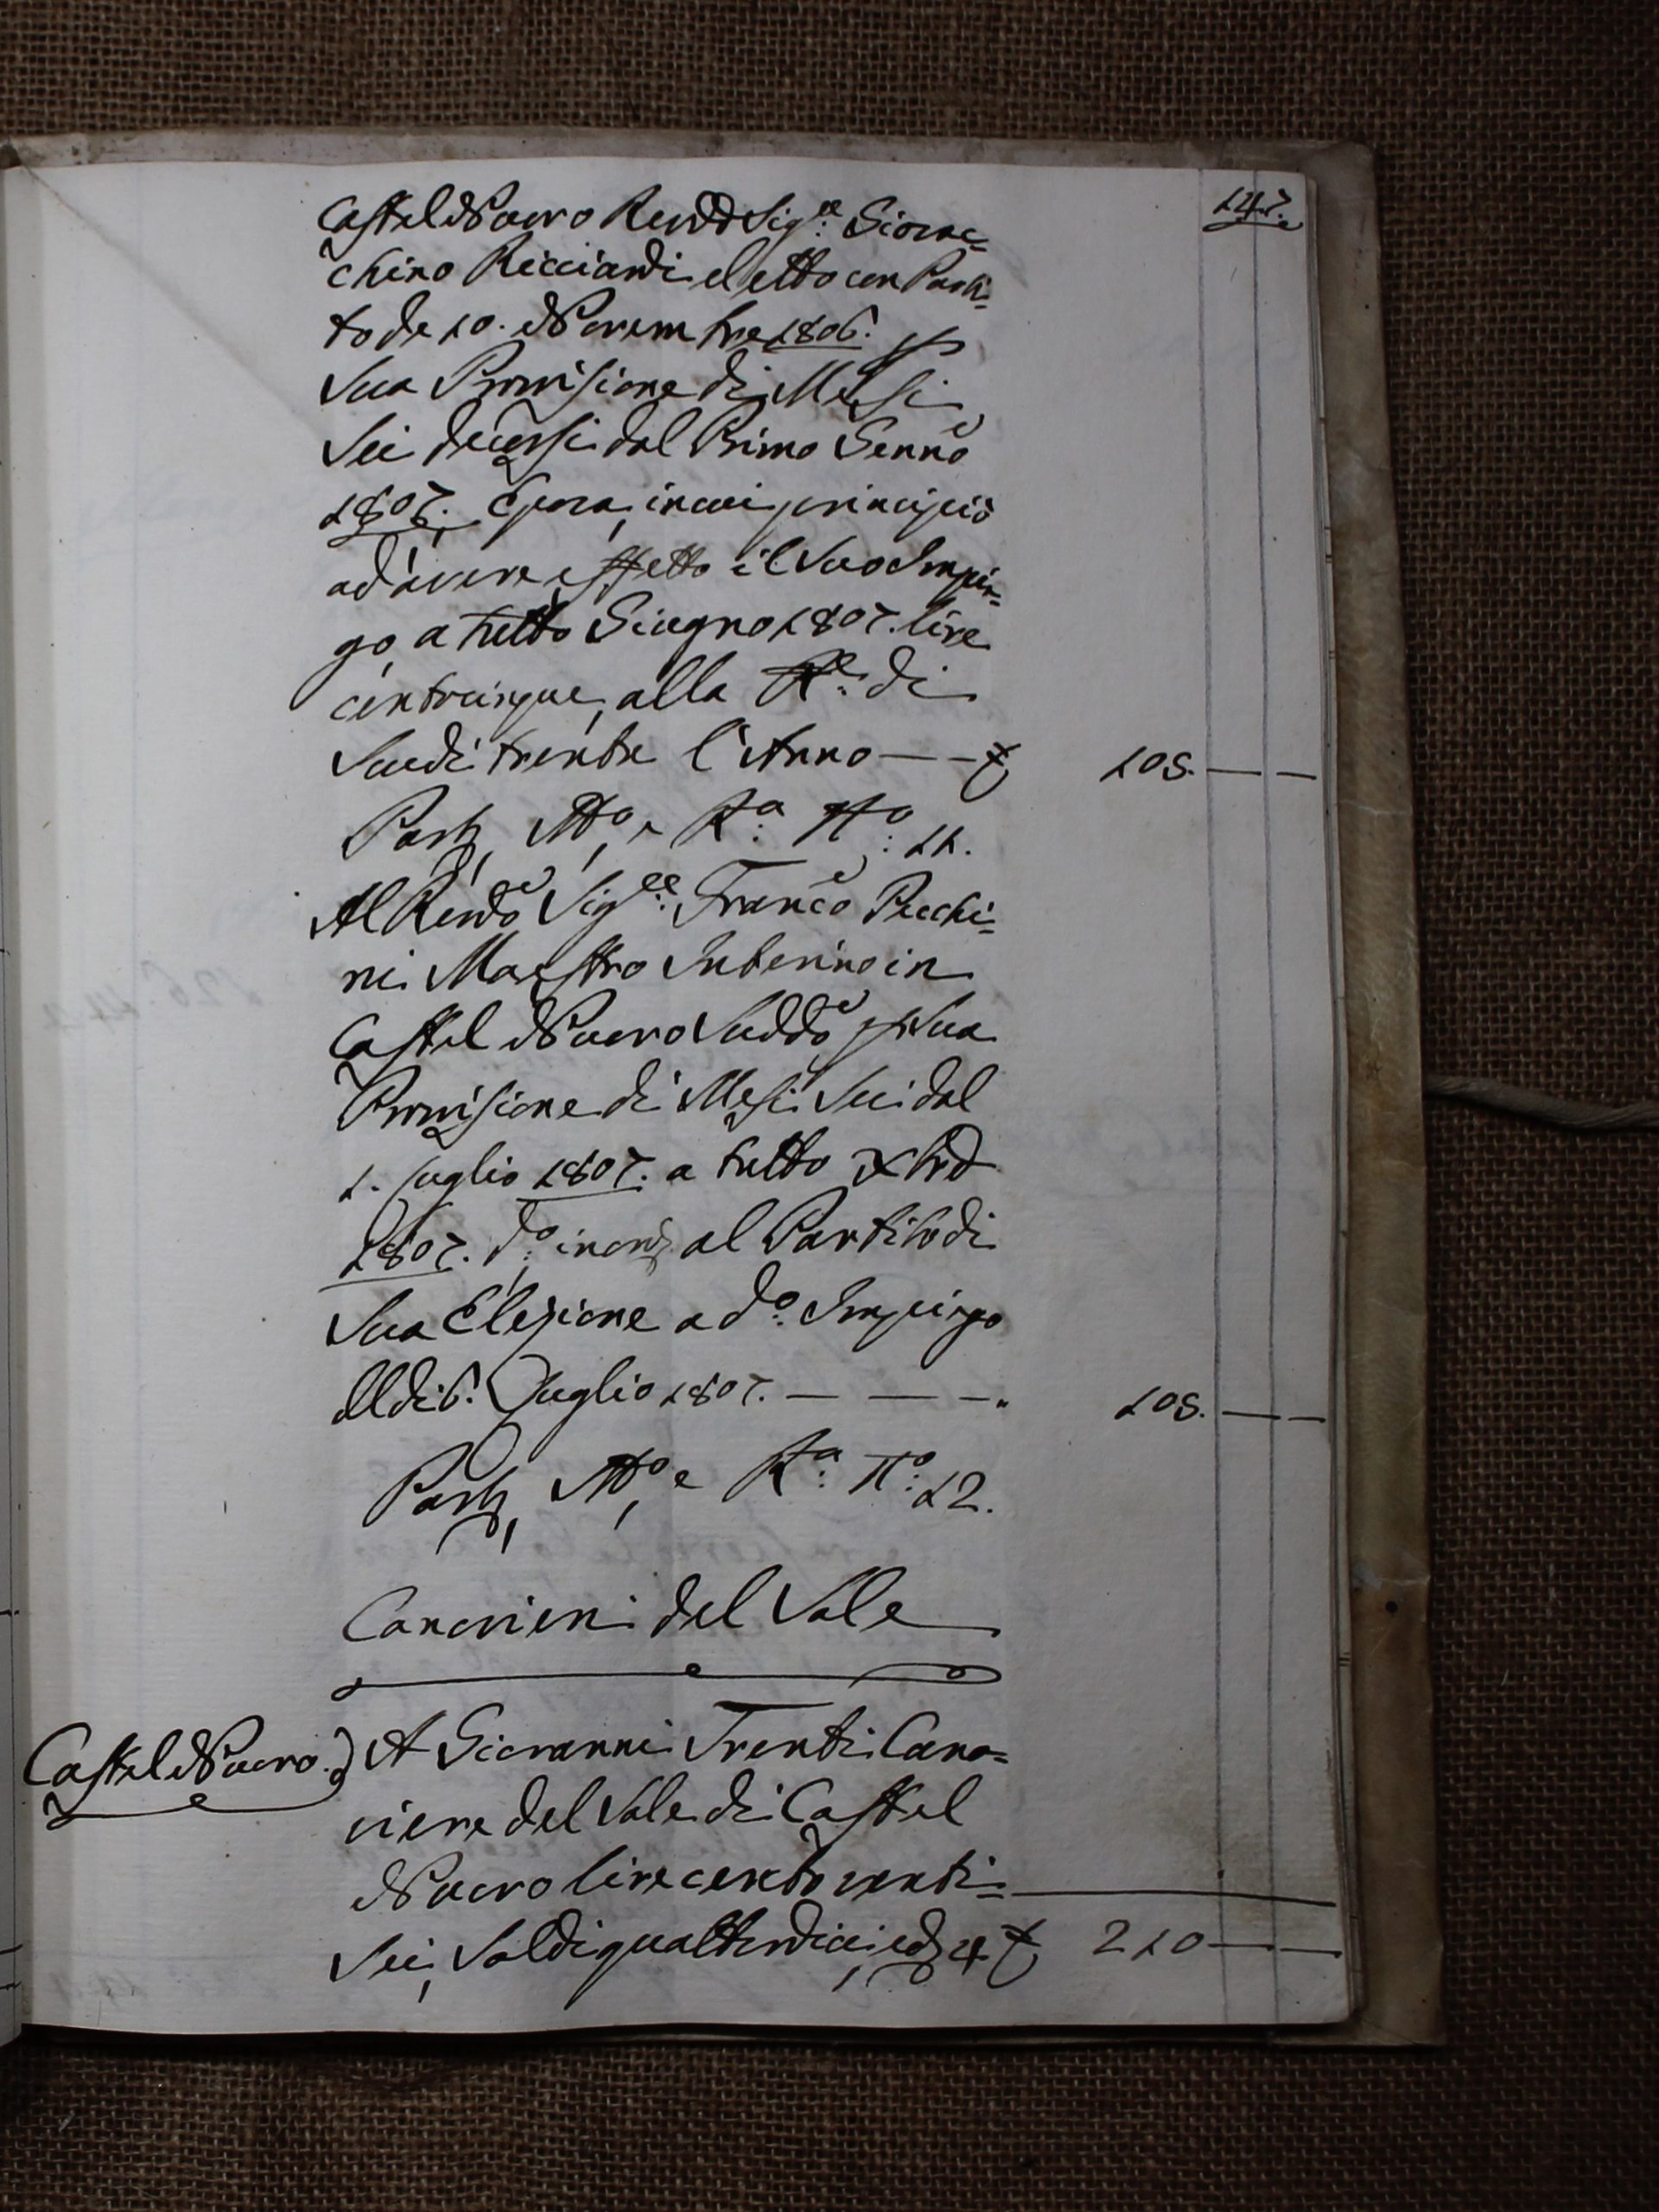 147.
Castel Nuovo Revdo Sigre: Gioac=
chino Ricciardi eletto con Parti=
to de 10. Novembre 1806. p
sua Provisione di Mesi
sei decorsi dal Primo Genno
1807. Epoca, in cui principiò
ad avere effetto il suo Impie=
go, a tutto Giugno 1807. lire
centocinque, alla Re: di
Scudi trenta l'Anno — — £ 105. — —
Parto, Mto, e Ra: No: 11.
Al Revdo Sigre: Franco Pecchi=
ni Maestro Interino in
Castel Nuovo Suddo p sua
Provisione di Mesi Sei dal
1. Luglio 1807. a tutto Xbre
1807. do: inerz al Partito di
sua Elezione a do: Impiego
del dì 6. Luglio 1807. — — — " 105. — —
Parto, Mto, e Ra: No: 12.
Canovieri del Sale
Castel Nuovo.) A Giovanni Trenti Cano=
viere del Sale di Castel
Nuovo lire cento venti=
sei, Soldi quattordici, e d 4 £ 210 — —